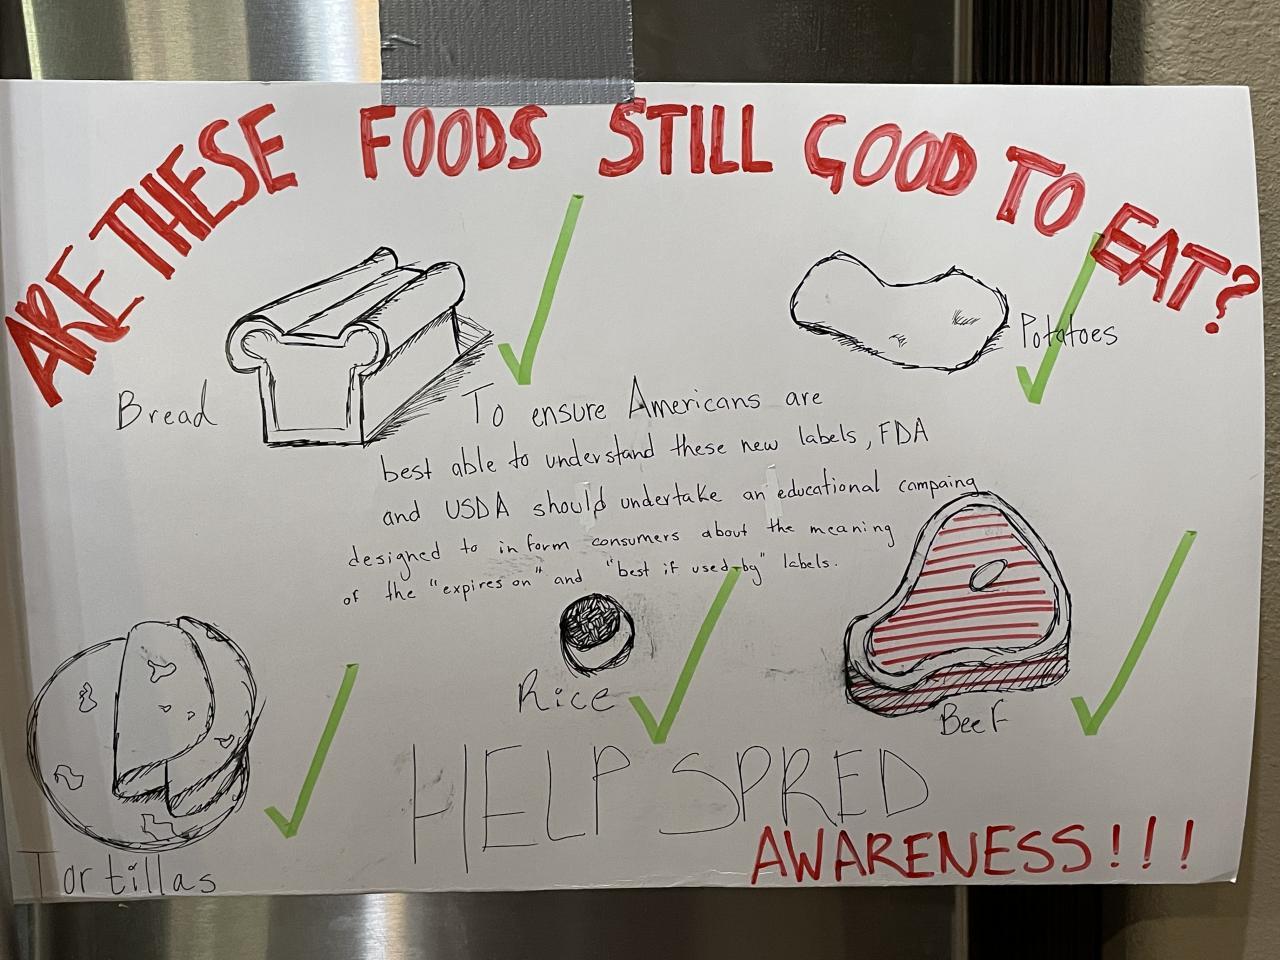 ARE THESE FOODS STILL GOOD TO EAT?
Bread
Potatoes
To ensure Americans are
best able to understand these new labels, FDA
and USDA should undertake an educational campaing
designed to inform consumers about the meaning
of the "expires on" and "best if used by" labels.
Rice
Beef
Tortillas
HELP SPRED
AWARENESS!!!